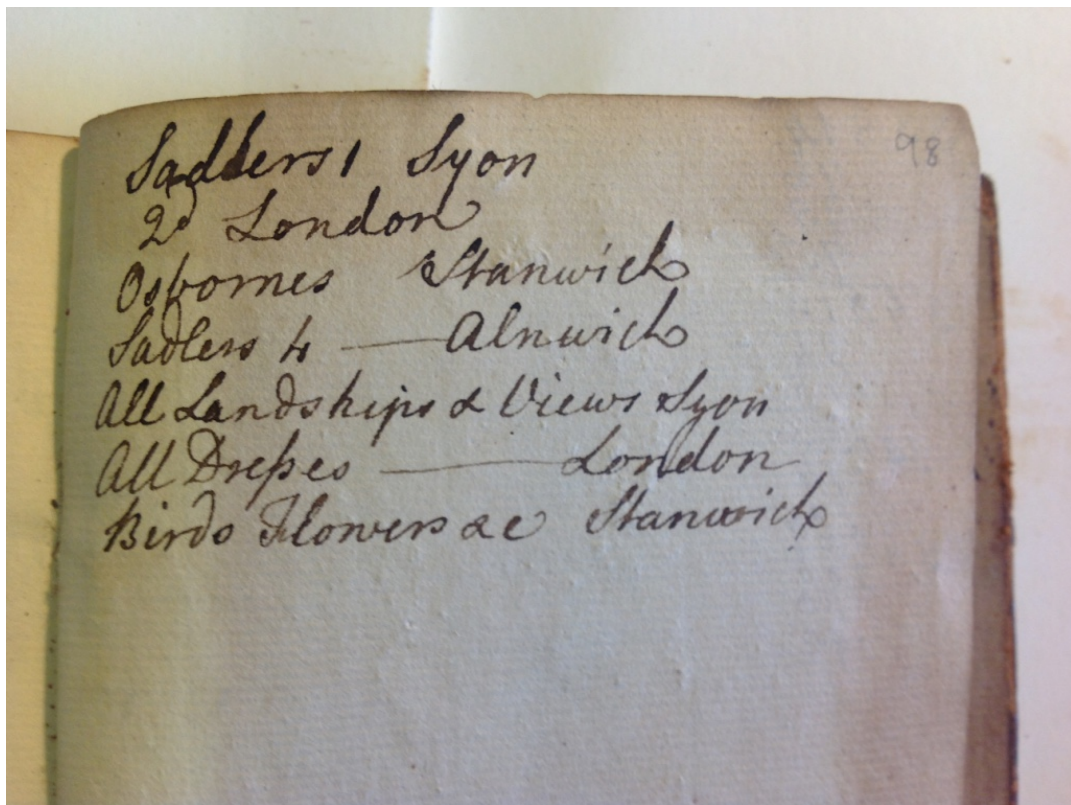 98
Sadlers 1 Syon
2d London
Osbornes Stanwick
Sadlers 4 — Alnwick
All Landskips & Views Syon
All Dreſses — London
Birds Flowers &c Stanwick